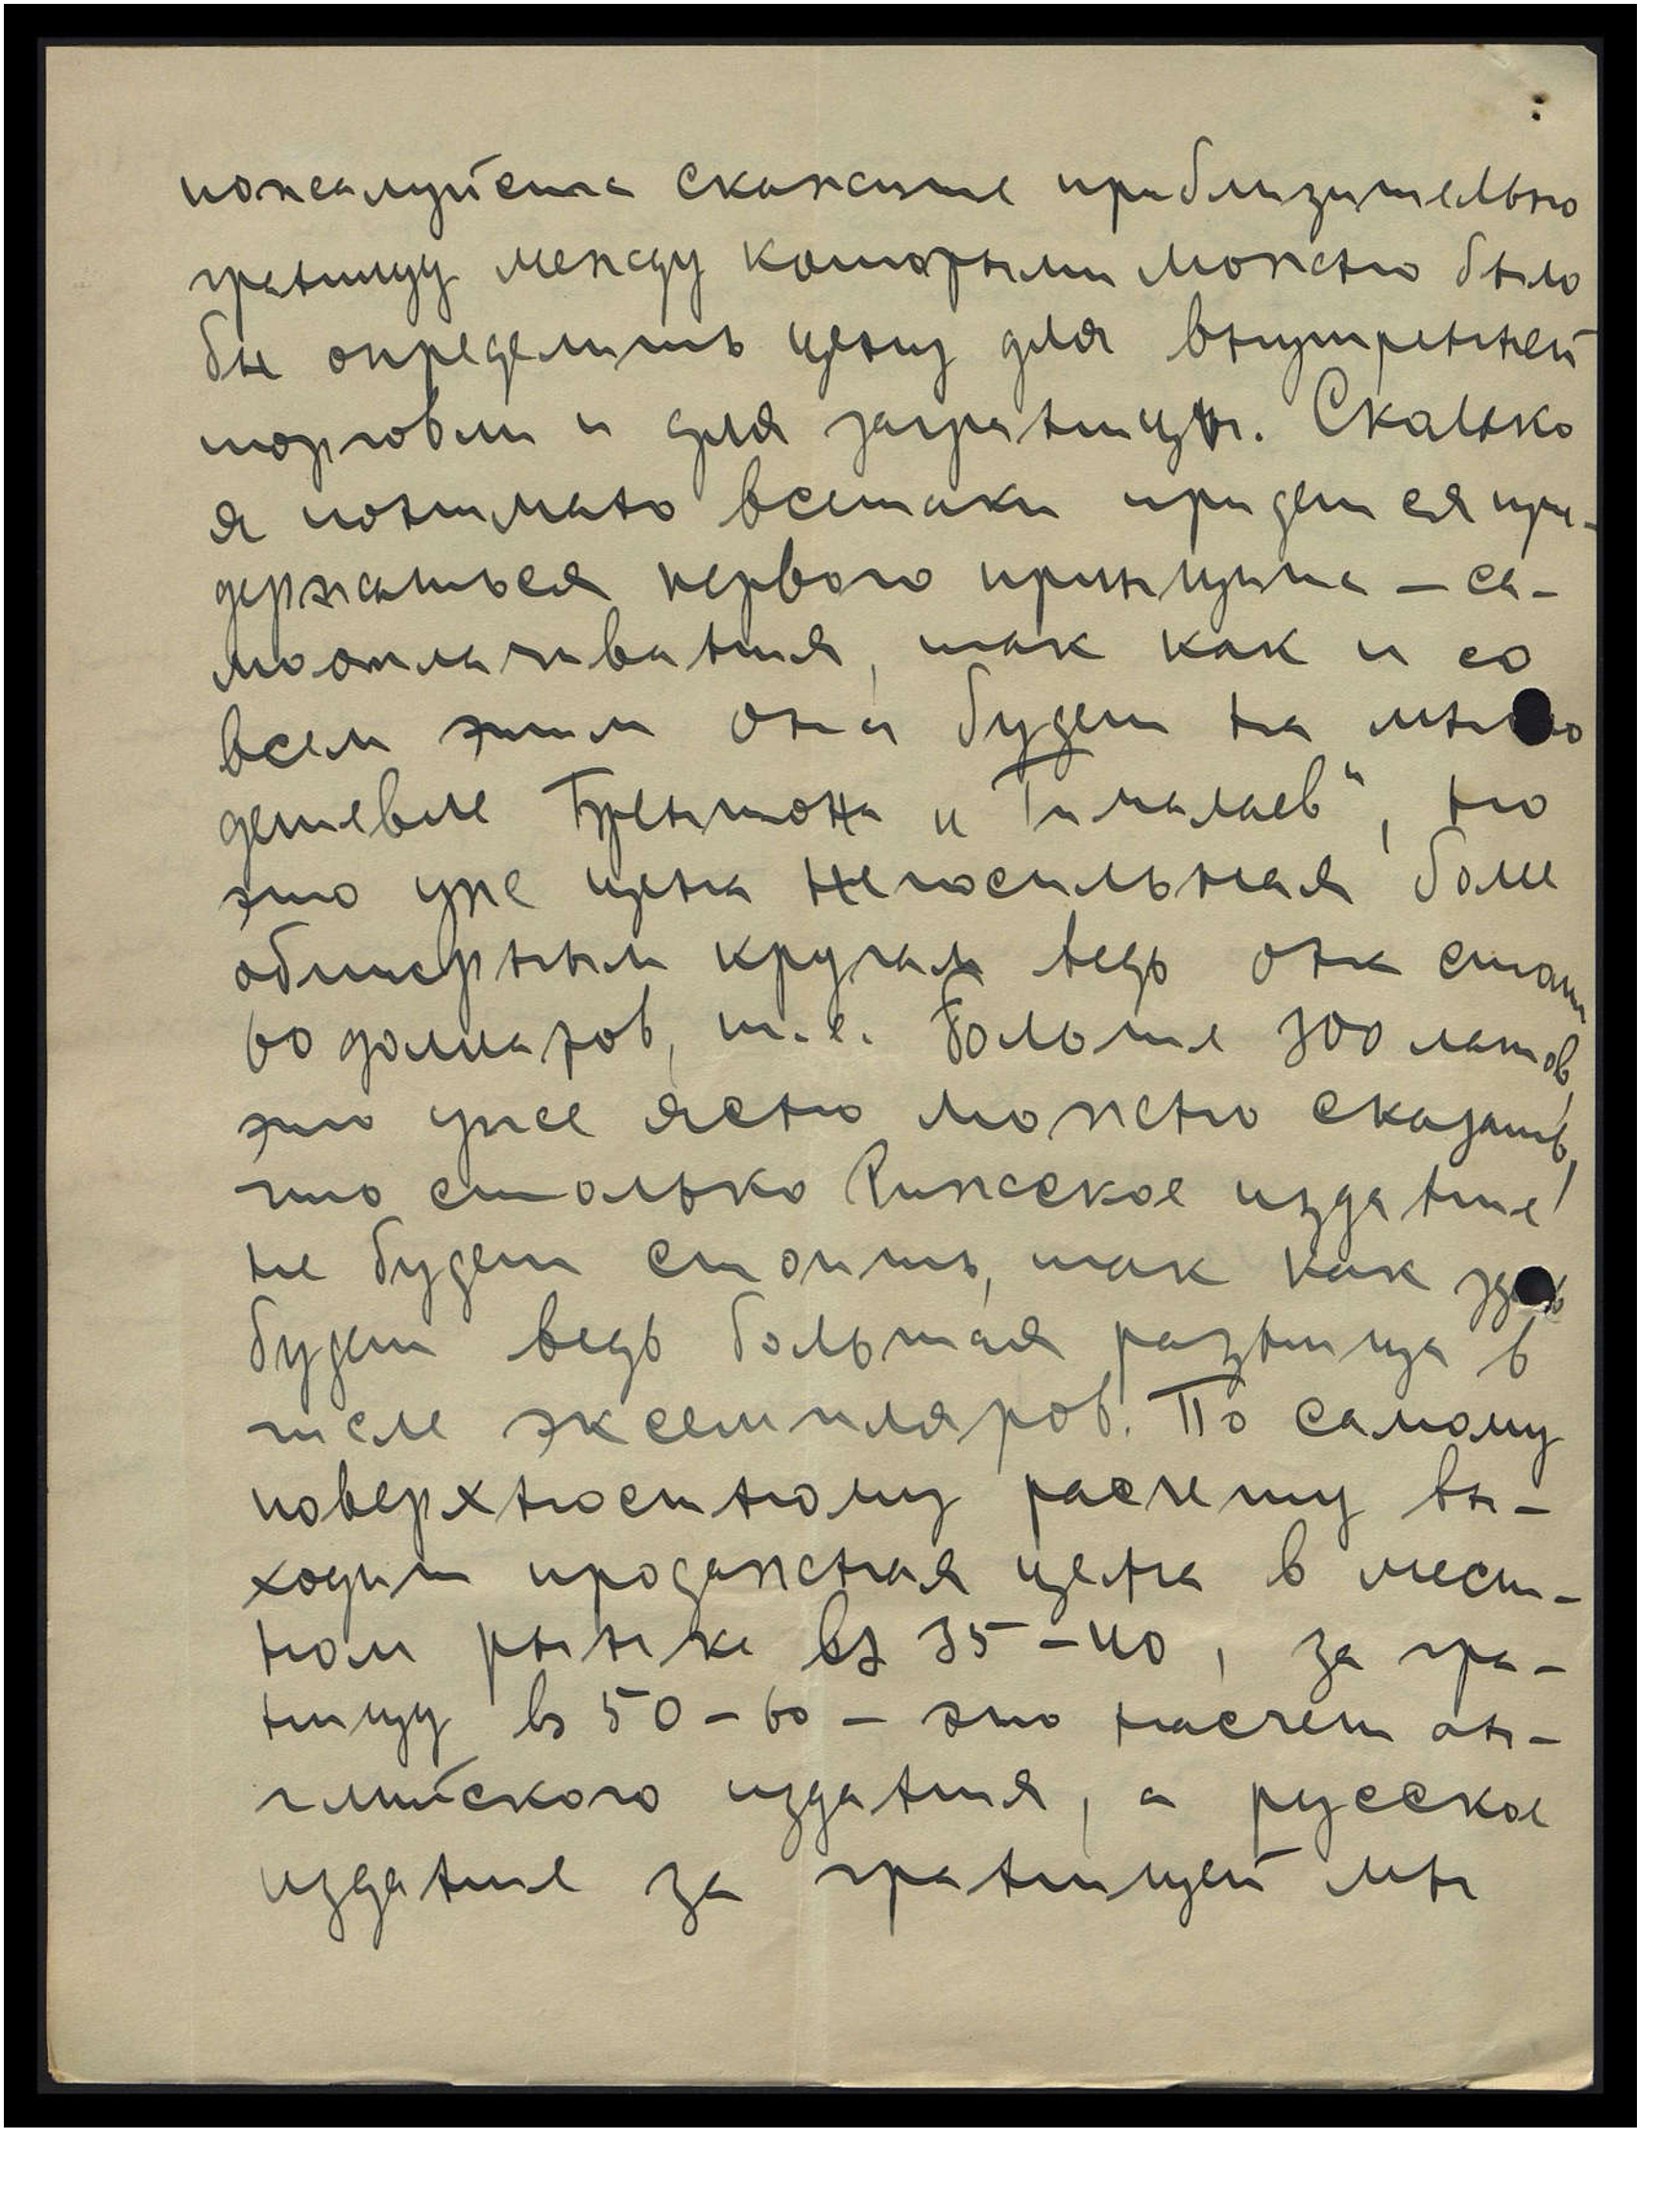 пожалуйста скажите приблизительно
границу между которыми можно было
бы определить цену для внутренней
торговли и для заграницы. Сколько
я понимаю всетаки придется при-
держаться первого принципа – са-
мооплачивания, так как и со
всем этим она будет на много
дешевле Брентона и "Гималаев", но
это уже цена непосильная боле
обширным кругам ведь она стоит
60 долларов, т.е. больше 300 латов,
это уже ясно можно сказать,
что столько Рижское издание
не будет стоить, так как здесь
будет ведь большая разница в
числе экземпляров. По самому
поверхностному расчету вы-
ходит продажная цена в мест-
ном рынке Ls 35–40, за гра-
ницу Ls 50–60 – это насчет ан-
глийского издания, а русское
издание за границей мы